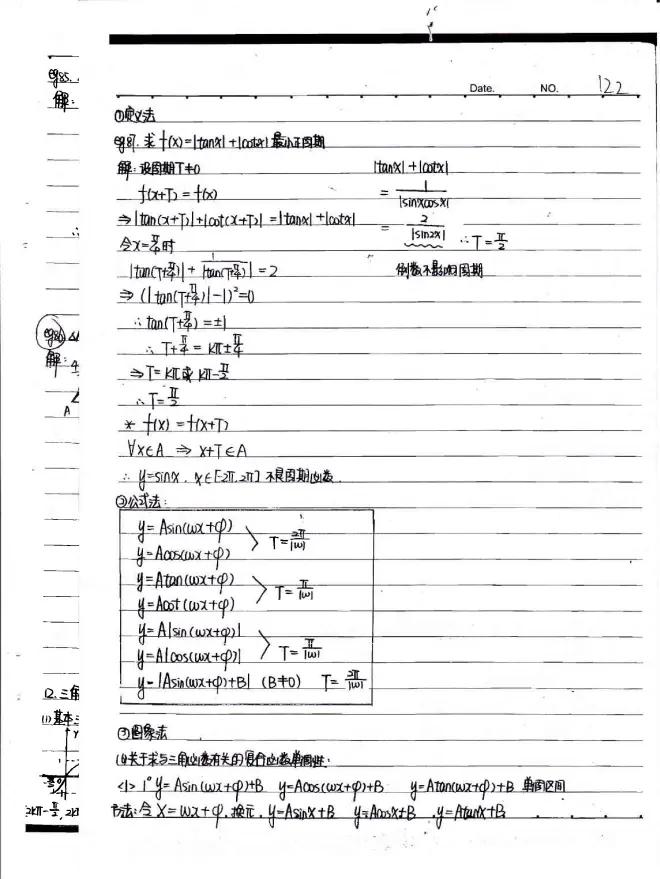 1°
eg85.
解:
eg86
解:
A
12. 三角
(1) 基本
y
1
2kπ-π/2, 2kπ
Date. NO. 122
①定义法
eg87. 求 f(x)=|tanx|+|cotx| 最小正周期
解: 设周期T≠0
f(x+T) = f(x)
⇒ |tan(x+T)|+|cot(x+T)| = |tanx|+|cotx|
令x=π/4时
|tan(T+π/4)| + 1/|tan(T+π/4)| = 2
⇒ (|tan(T+π/4)|-1)²=0
∴ tan(T+π/4) = ±1
∴ T+π/4 = kπ±π/4
⇒ T= kπ 或 kπ-π/2
∴ T=π/2
|tanx|+|cotx|
= 1/|sinxcosx|
= 2/|sin2x| ∴ T=π/2
倒数不影响周期
* f(x) = f(x+T)
∀x∈A ⇒ x+T∈A
∴ y=sinx, x∈[-2π, 2π] 不是周期函数
②公式法:
y= Asin(ωx+φ)
y=Acos(ωx+φ) > T=2π/|ω|
y=Atan(ωx+φ)
y=Acot(ωx+φ) > T=π/|ω|
y=A|sin(ωx+φ)|
y=A|cos(ωx+φ)| > T=π/|ω|
y=|Asin(ωx+φ)+B| (B≠0) T=2π/|ω|
③图象法
(4)关于求与三角函数有关的复合函数单调性:
<1> 1° y=Asin(ωx+φ)+B y=Acos(ωx+φ)+B y=Atan(ωx+φ)+B 单调区间
方法: 令 X=ωx+φ, 换元, y=AsinX+B y=AcosX+B, y=AtanX+B